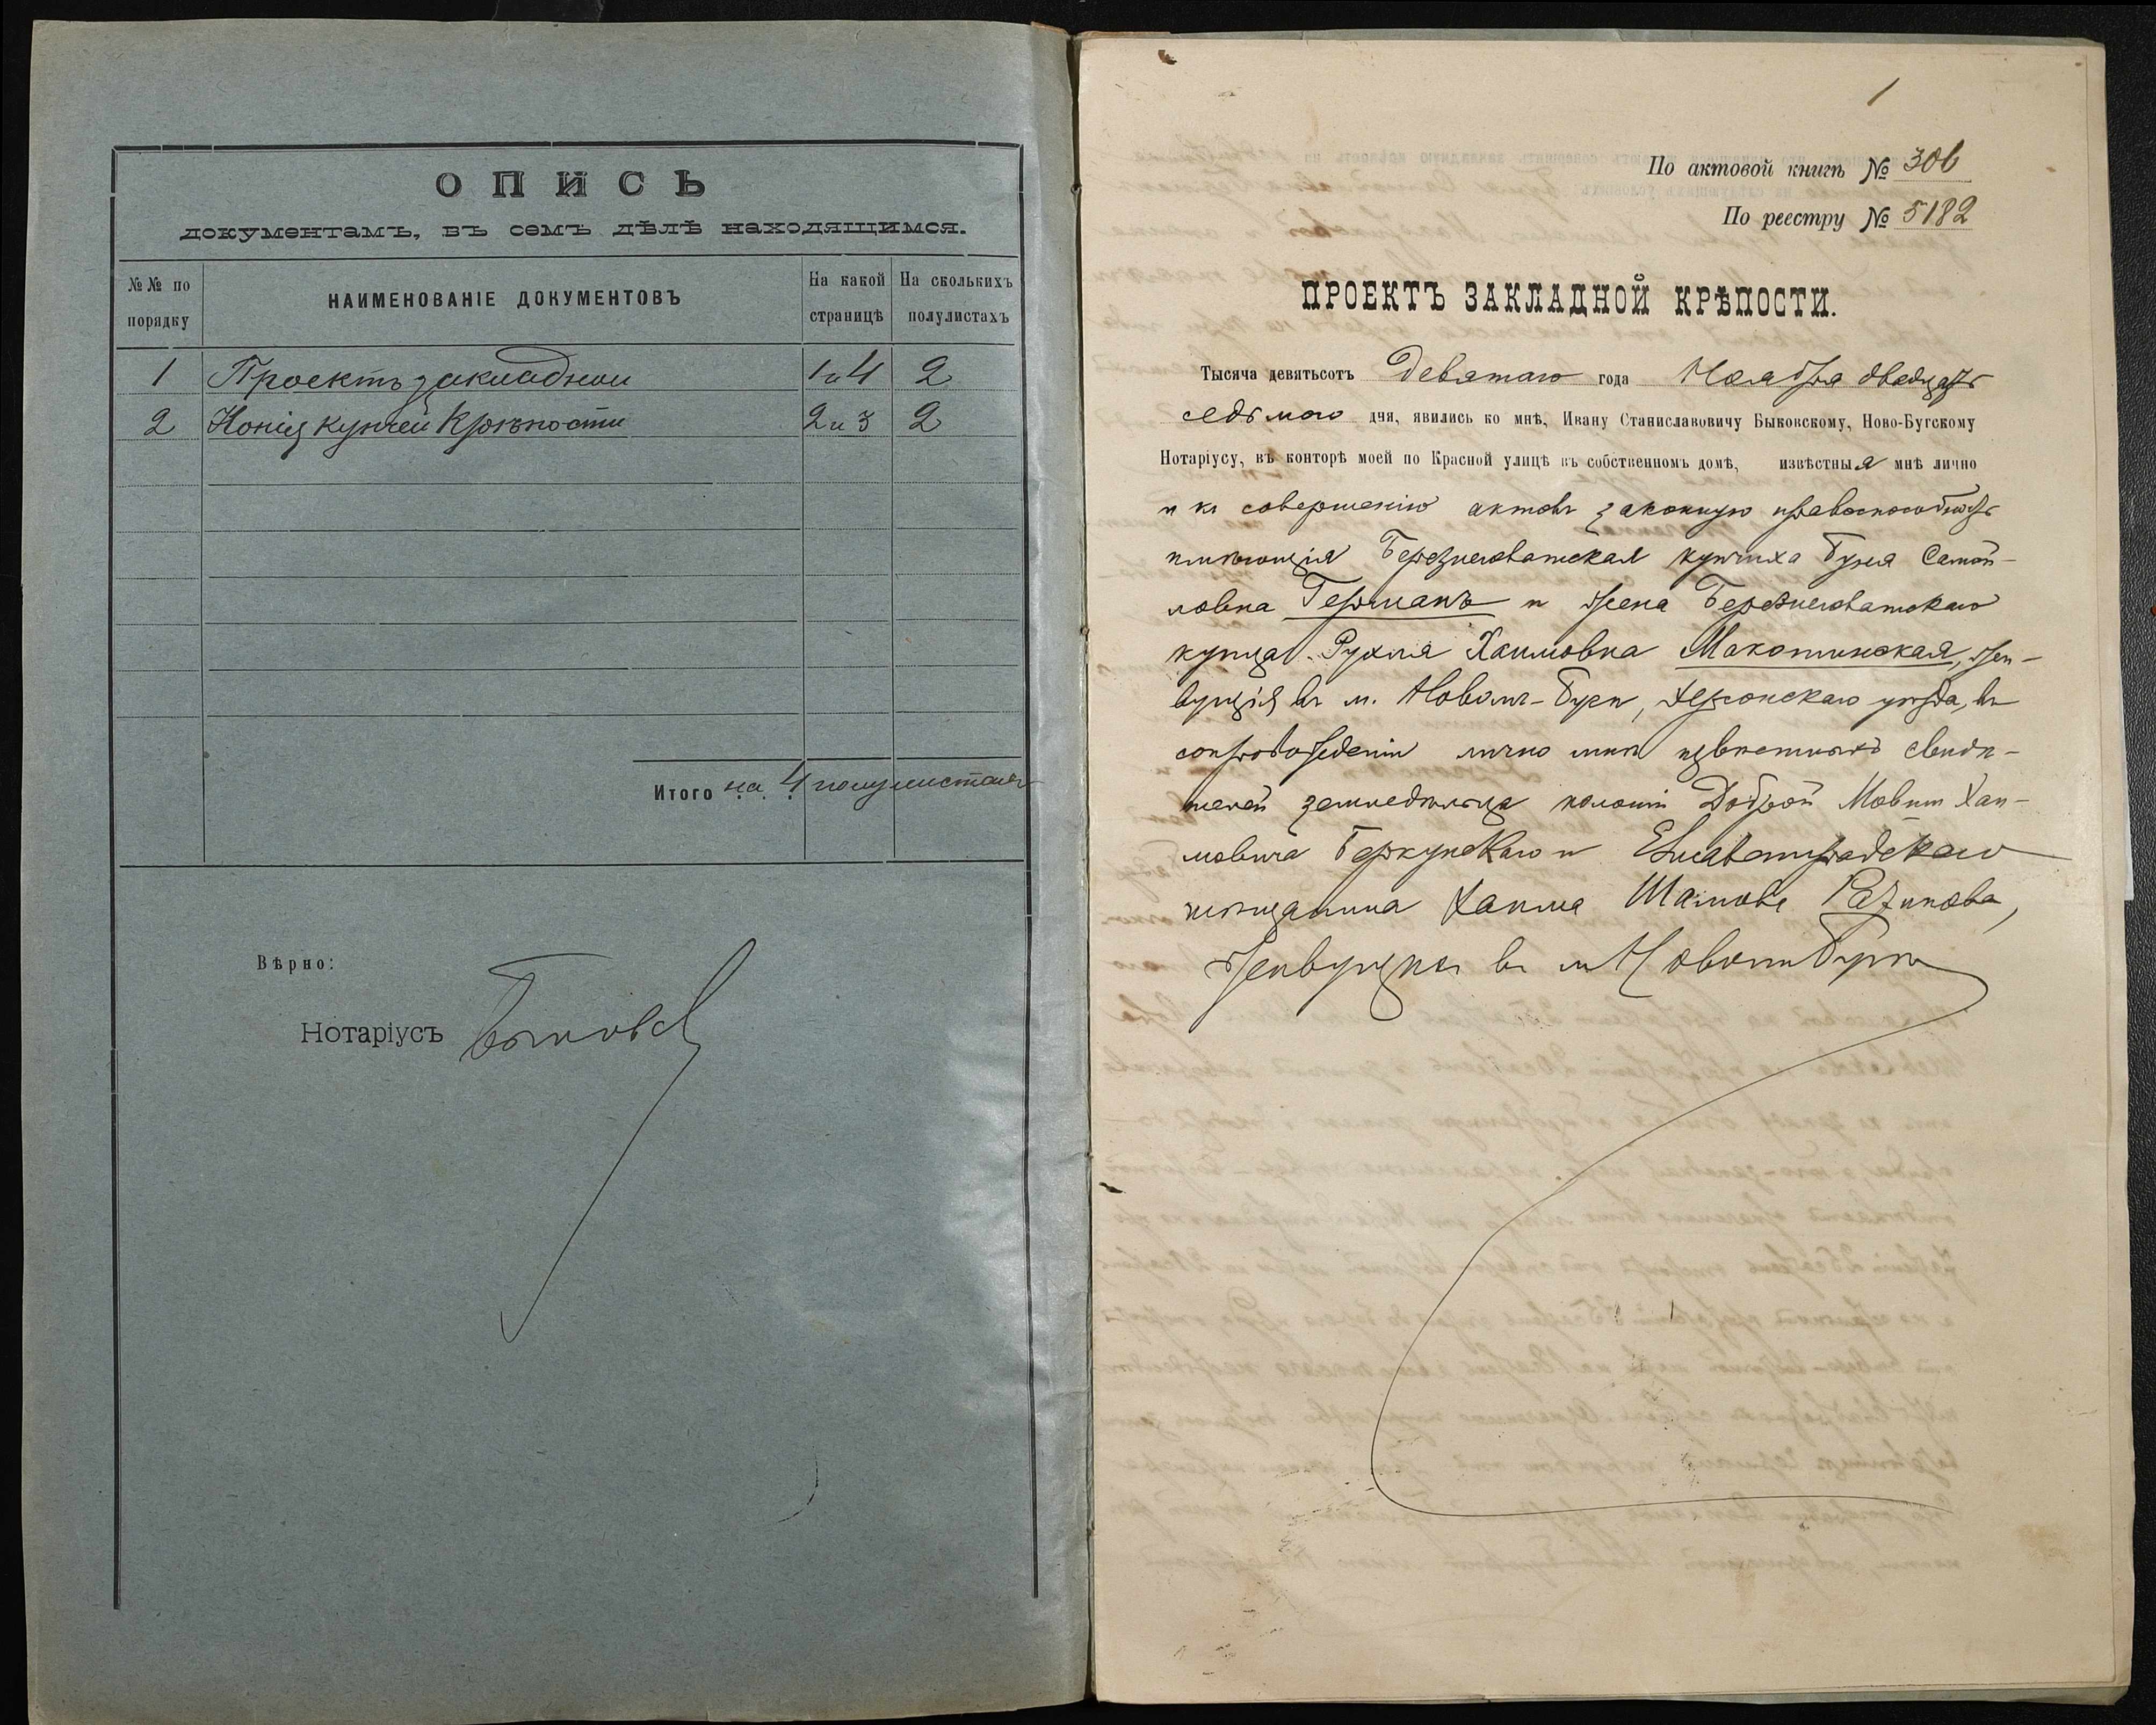 ОПИСЬ
документамъ, въ семъ дѣлѣ находящимся.
№№ по порядку
НАИМЕНОВАНІЕ ДОКУМЕНТОВЪ
На какой страницѣ
На сколькихъ полулистахъ
1 Проектъ закладной 1 и 4 2
2 Копія купчей крѣпости 2 и 3 2
Итого на 4 полулистахъ
Вѣрно:
Нотаріусъ
1
По актовой книгѣ № 306
По реестру № 5182
ПРОЕКТЪ ЗАКЛАДНОЙ КРѢПОСТИ.
Тысяча девятьсотъ девятаго года Ноября двадцать
седьмого дня, явились ко мнѣ, Ивану Станиславовичу Быковскому, Ново-Бугскому
Нотаріусу, въ конторѣ моей по Красной улицѣ въ собственномъ домѣ, извѣстныя мнѣ лично
и къ совершенію актовъ законную правоспособность
имѣющія Березнеговатская купчиха Буня Самой-
ловна Германъ и жена Березнеговатскаго
купца Рухля Хаимовна Макотинская, жи-
вущія въ м. Новомъ-Бугѣ, Херсонскаго уѣзда, въ
сопровожденіи лично мнѣ извѣстныхъ свидѣ-
телей земледѣльца колоніи Доброй Мовши Хаи-
мовича Беркунскаго и Елисаветградскаго
мѣщанина Хаима Разинова,
живущихъ въ м Новомъ Бугѣ